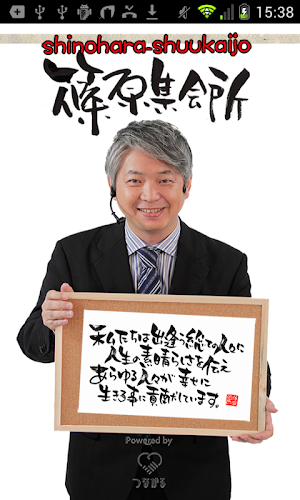 15:38
shinohara-shuukaijo
篠原集会所
私たちは出逢う総ての人々に
人生の素晴らしさを伝え
あらゆる人々が幸せに
生きる事に貢献がしています。
Powered by
つながる